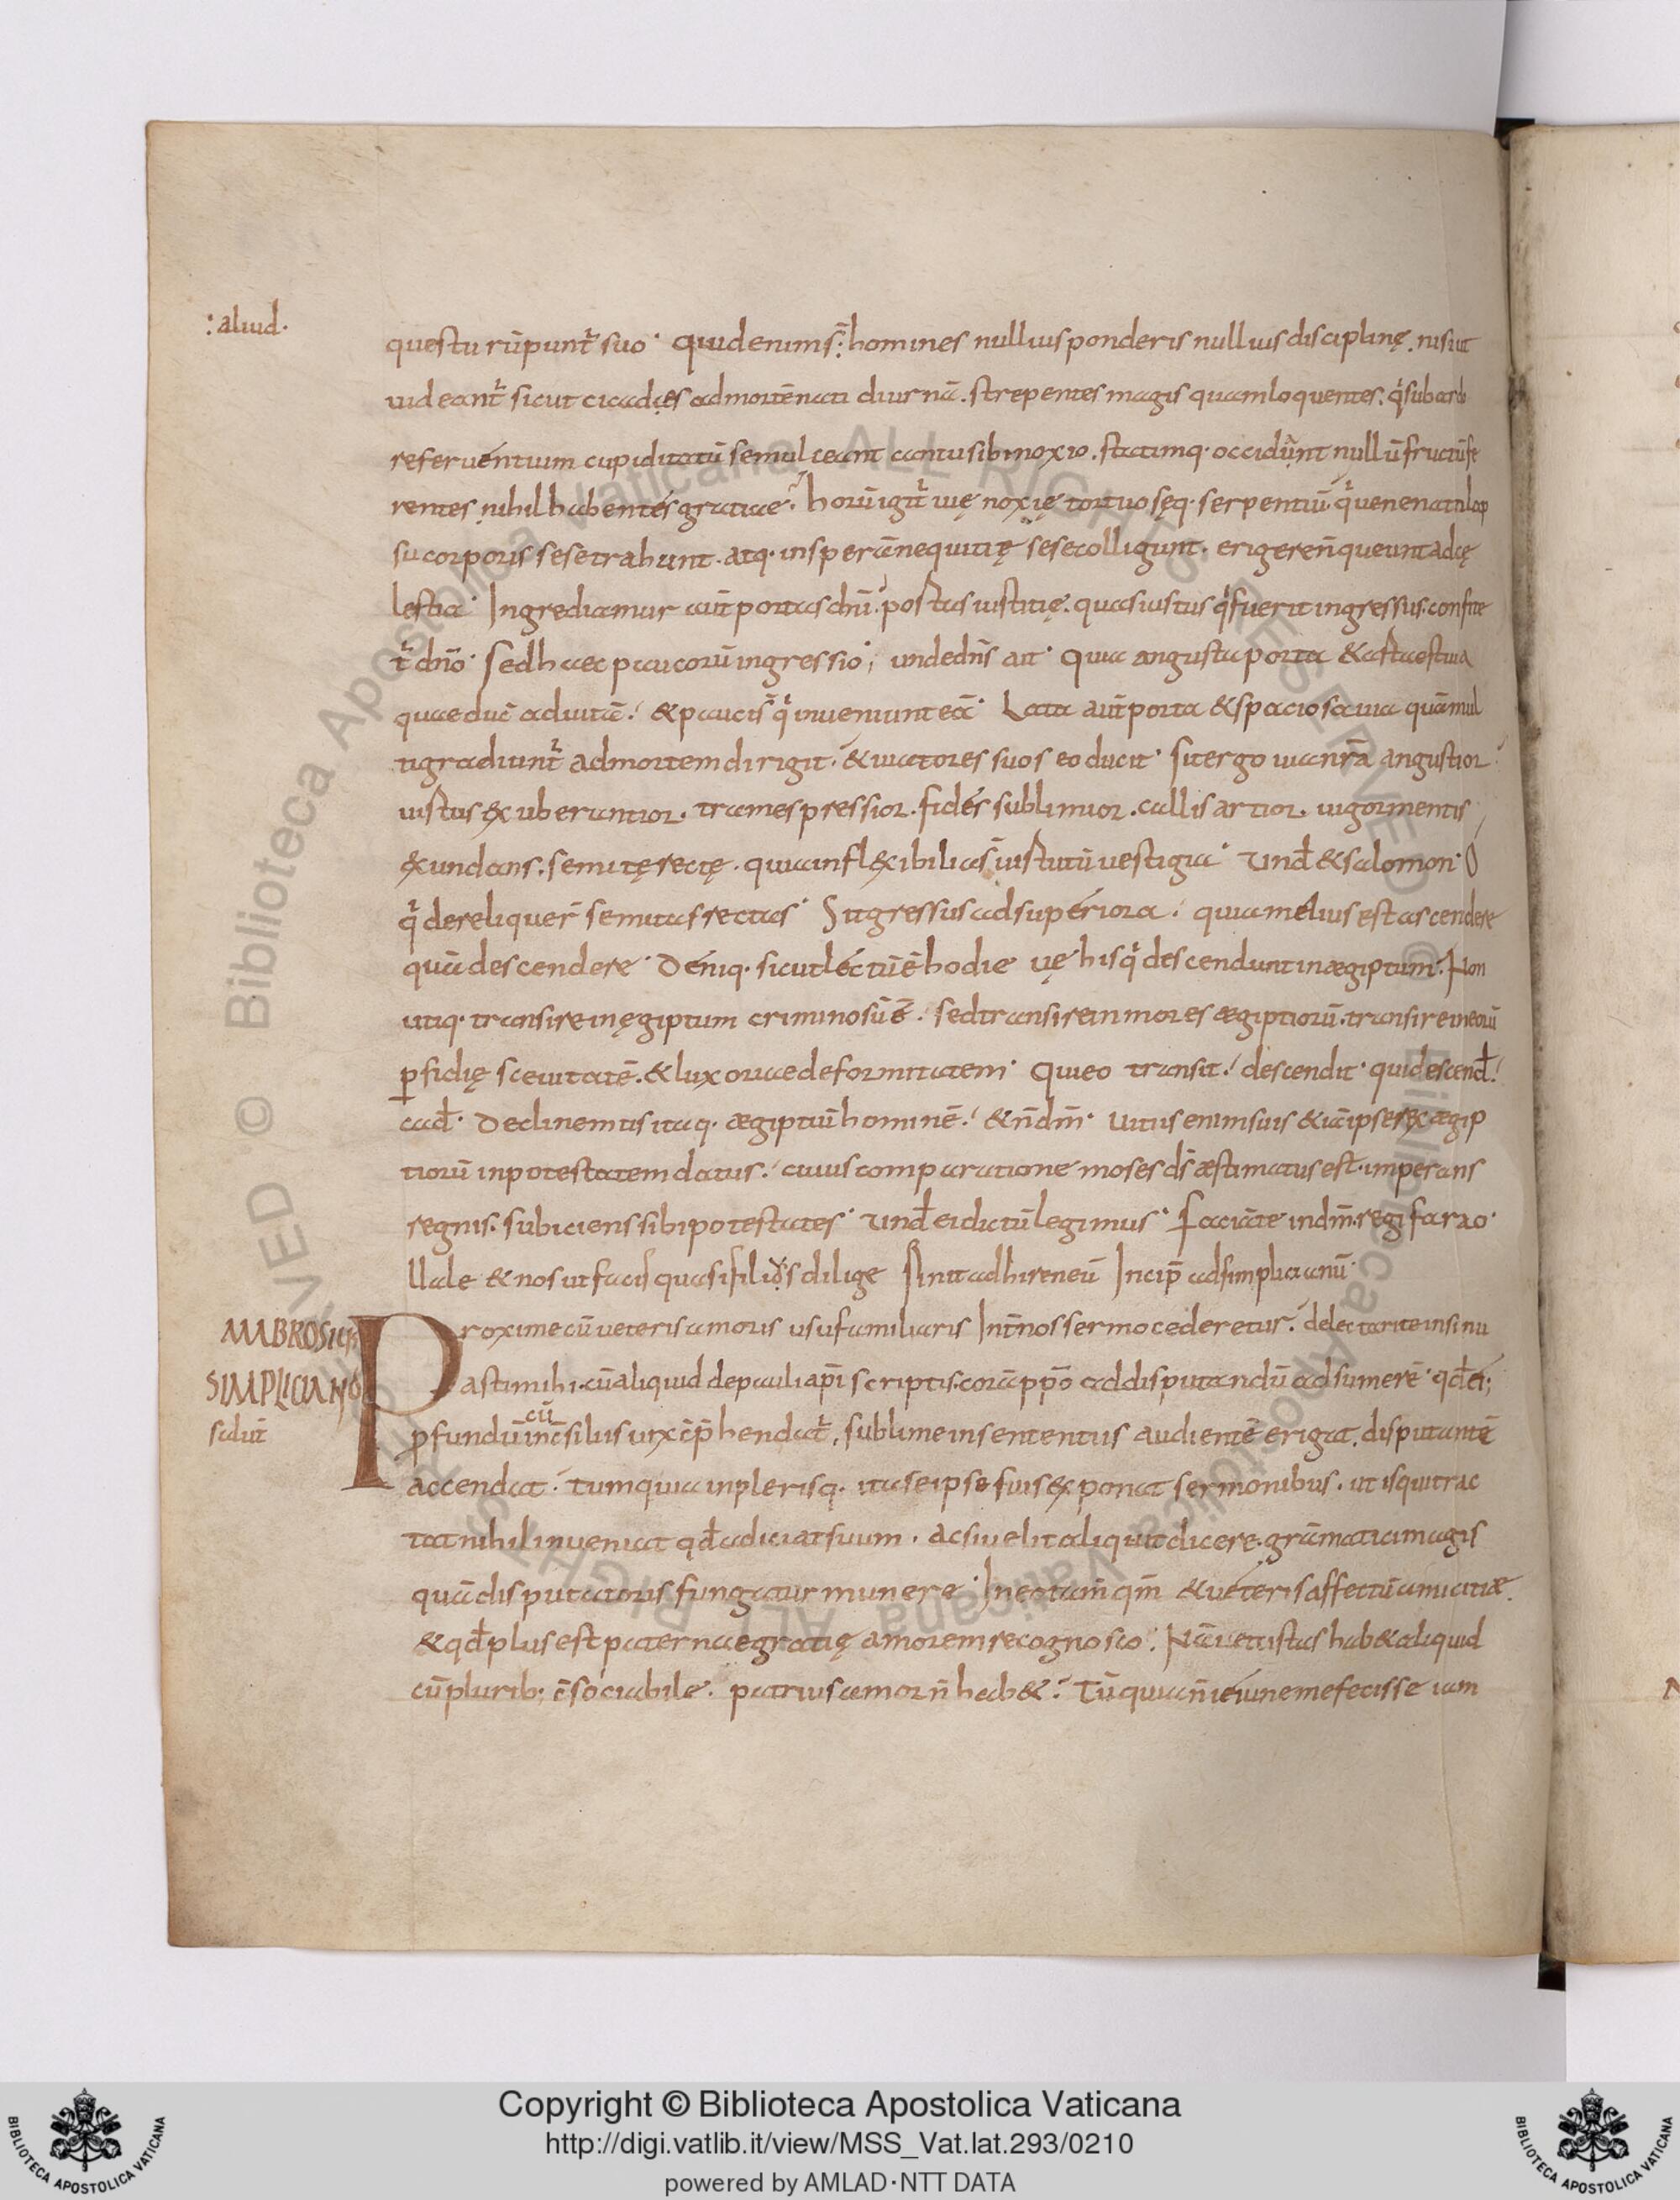 :aliud·
questu rūpunt̃ suo· quid enim s̄: homines nullius ponderis nullius disciplinę. nisi ut
uideant̃ sicut cicadęs ad mortē nati diurnā. strepentes magis quam loquentes. q̇ sub arbo
re feruentium cupiditatū semulceant cantu sibi noxio. statimq· occidunt nullū fructū fe
rentes nihil habentes gratiae. horū igit̃ uię noxię tortuosęq· serpentiū. q̇ uenenato lap
su corporis sese trahunt. atq· in sperā nequitię sese colligunt. erigere n̄ queunt ad cę
lestia· Ingrediamur aut̄ portas dn̄i. portas iustitię. quas iustus q̇ fuerit ingressus. confite
t̃ dn̄o· Sed haec paucorū ingressio; unde dn̄s ait· quia angusta porta & asta est uia
quae duc̄ ad uitā. & pauci s̄ q̇ inueniunt eā· Lata aut̄ porta & spaciosa uia quā mul
ti gradiunt̃ ad mortem dirigit. & uiatores suos eo ducit· sit ergo uia nr̄a angustior
uistus exuberantior. trames pressior. fides sublimior. callis artior. uigor mentis
exundans. semitę rectę. quia inflexibilia s̄ uistutū vestigia· Und̄ & salomon· O
q̇ dereliquer̄ semitas rectas· Sit gressus ad superiora. quia melius est ascendere
quā descendere· Deniq· sicut lectū ē hodie uę his q̇ descendunt in ægiptum. Non
utiq· transire in ęgiptum criminosū ē. sed transire in mores ægiptiorū. transire in eorū
pfidię sceuitatē. & luxoriae deformitatem· Qui eo transit. descendit· qui descend̄.
cad̄· Declinemus itaq· ægiptiū hominē. & n̄ dm̄· uitiis enim suis & iā ipse rex ægip
tiorū in potestatem datus. cuius comparatione moses ds̄ æstimatus est. imperans
regnis. subiciens sibi potestates· Und̄ ei dictū legimus· Faciā te in dm̄. regi farao·
Uale & nos ut facis quasi filios dilige Finit ad hireneū Incip̄ ad simplicianū·
AMBROSIUS
SIMPLICIANO
salut̄
Proxime cū ueteris amoris usu familiaris Int̄ nos sermo cederetur. delectari te insinu
asti mihi. cū aliquid de pauli ap̄i scriptis. corā pp̄o ad disputandū adsumerē· qd̄ ei;
pfundū in c̄siliis uix c̄p̄hendat̃, sublime in sententiis audientē erigat. disputantē
cū
accendat. tum quia in plerisq· ita se ipse suis exponat sermonibus. ut is qui trac
tat nihil inueniat qd̄ adiciat suum. ac si uelit aliquit dicere. grāmatici magis
quā disputatoris fungatur munere· In eo tam̄ qm̄ & ueteris affectū amicitiæ.
& qd̄ plus est paternae gratię amorem recognosco. Nā uetustas hab& aliquid
cū plurib; c̄sociabile. patrius amor n̄ hab&. Tū quia n̄ ieiune me fecisse iam
Copyright © Biblioteca Apostolica Vaticana
http://digi.vatlib.it/view/MSS_Vat.lat.293/0210
powered by AMLAD·NTT DATA